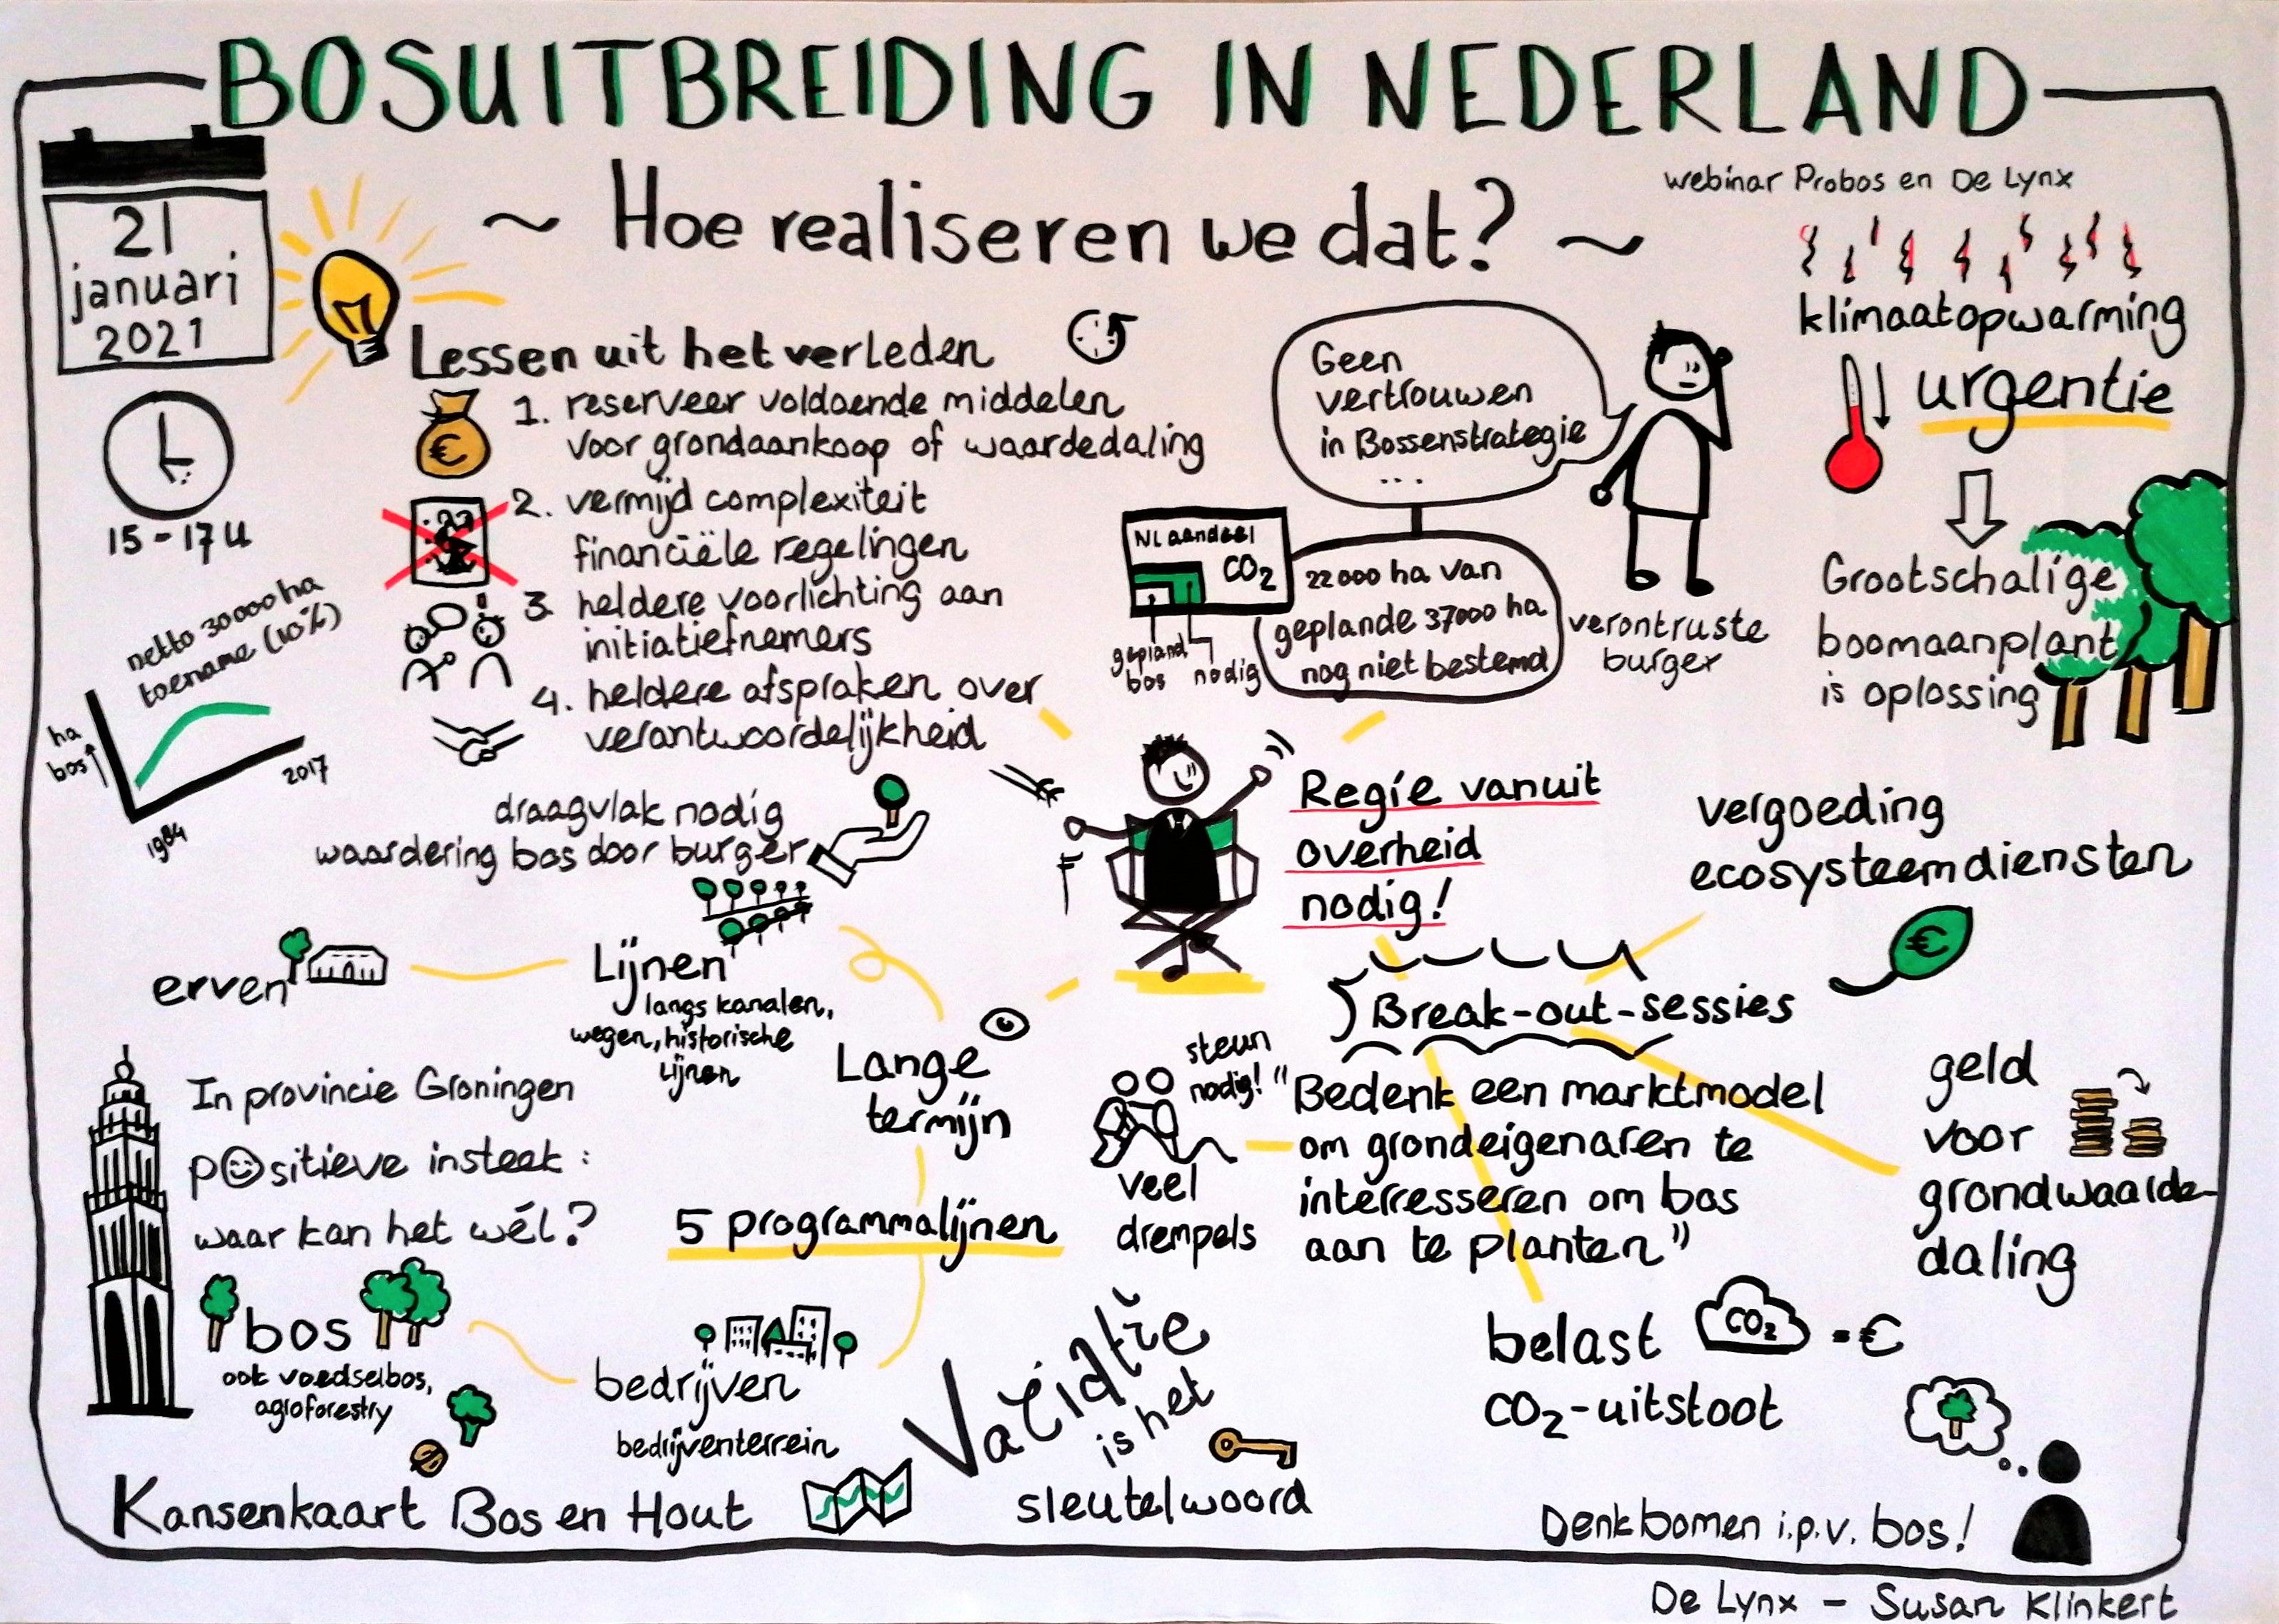 BOSUITBREIDING IN NEDERLAND
~ Hoe realiseren we dat? ~
webinar Probos en De Lynx
21
januari
2021
15-17u
netto 30000 ha
toename (10%)
ha
bos
1984
2017
Lessen uit het verleden
€
1. reserveer voldoende middelen
voor grondaankoop of waardedaling
2. vermijd complexiteit
financiële regelingen
3. heldere voorlichting aan
initiatiefnemers
4. heldere afspraken over
verantwoordelijkheid
Geen
vertrouwen
in Bossenstrategie
...
NL aandeel
CO2
gepland
bos
nodig
22000 ha van
geplande 37000 ha
nog niet bestemd
verontruste
burger
klimaatopwarming
urgentie
Grootschalige
boomaanplant
is oplossing
draagvlak nodig
waardering bos door burger
Regie vanuit
overheid
nodig!
vergoeding
ecosysteemdiensten
€
erven
Lijnen
langs kanalen,
wegen, historische
lijnen
Lange
termijn
In provincie Groningen
positieve insteek:
waar kan het wél?
5 programmalijnen
bos
ook voedselbos,
agroforestry
bedrijven
bedrijventerrein
Kansenkaart Bos en Hout
steun
nodig!
veel
drempels
Break-out-sessies
"Bedenk een marktmodel
om grondeigenaren te
interresseren om bos
aan te planten"
geld
voor
grondwaarde-
daling
belast CO2 = €
CO2-uitstoot
is het
sleutelwoord
Denk bomen i.p.v. bos!
De Lynx - Susan Klinkert